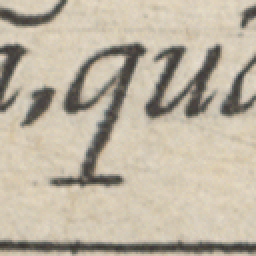 a, qua